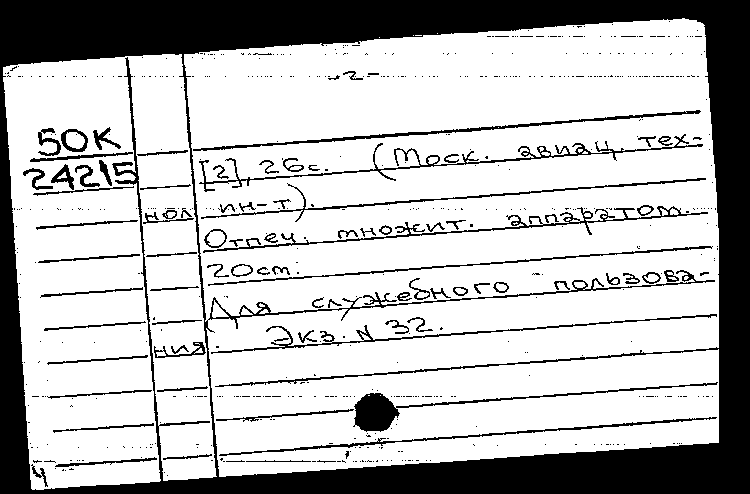 -2-
50К
24215
[2], 26с. (Моск. авиац. тех-
нол ин-т).
Отпеч. множит. аппаратом.
20см.
Для служебного пользова-
ния. Экз. N 32.
4